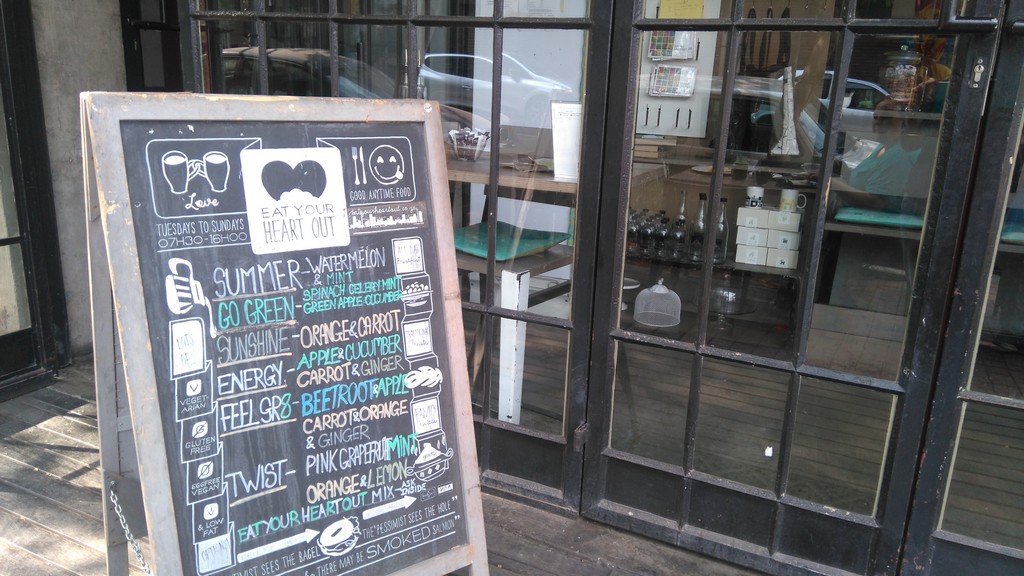 Love
GOOD ANYTIME FOOD
EAT YOUR
HEART OUT
TUESDAYS TO SUNDAYS
07H30-16H00
SUMMER - WATERMELON
& MINT
GO GREEN - SPINACH CELERY MINT
GREEN APPLE CUCUMBER
SUNSHINE - ORANGE & CARROT
ENERGY - APPLE & CUCUMBER
CARROT & GINGER
FEEL GR8 - BEETROOT & APPLE
CARROT & ORANGE
& GINGER
TWIST - PINK GRAPEFRUIT MINT
ORANGE & LEMON
EAT YOUR HEART OUT MIX - ASK
INSIDE
LOTS
OF
VEGET-
ARIAN
GLUTEN
FREE
EGG FREE
VEGAN
& LOW
FAT
OPTIMIST SEES THE BAGEL
THE PESSIMIST SEES THE HOLE"
THERE MAY BE SMOKED SALMON